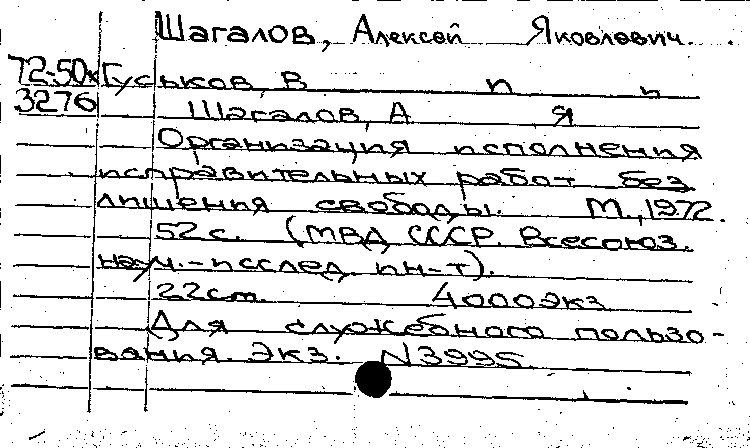 Шагалов, Алексей Яковлевич.
72-50к Гуськов, В П и
3276 Шагалов, А Я
Организация исполнения
исправительных работ без
лишения свободы. М., 1972.
52 с. (МВД СССР. Всесоюз.
науч.-исслед. ин-т).
22см. 4000экз
Для служебного пользо-
вания. Экз. N3995